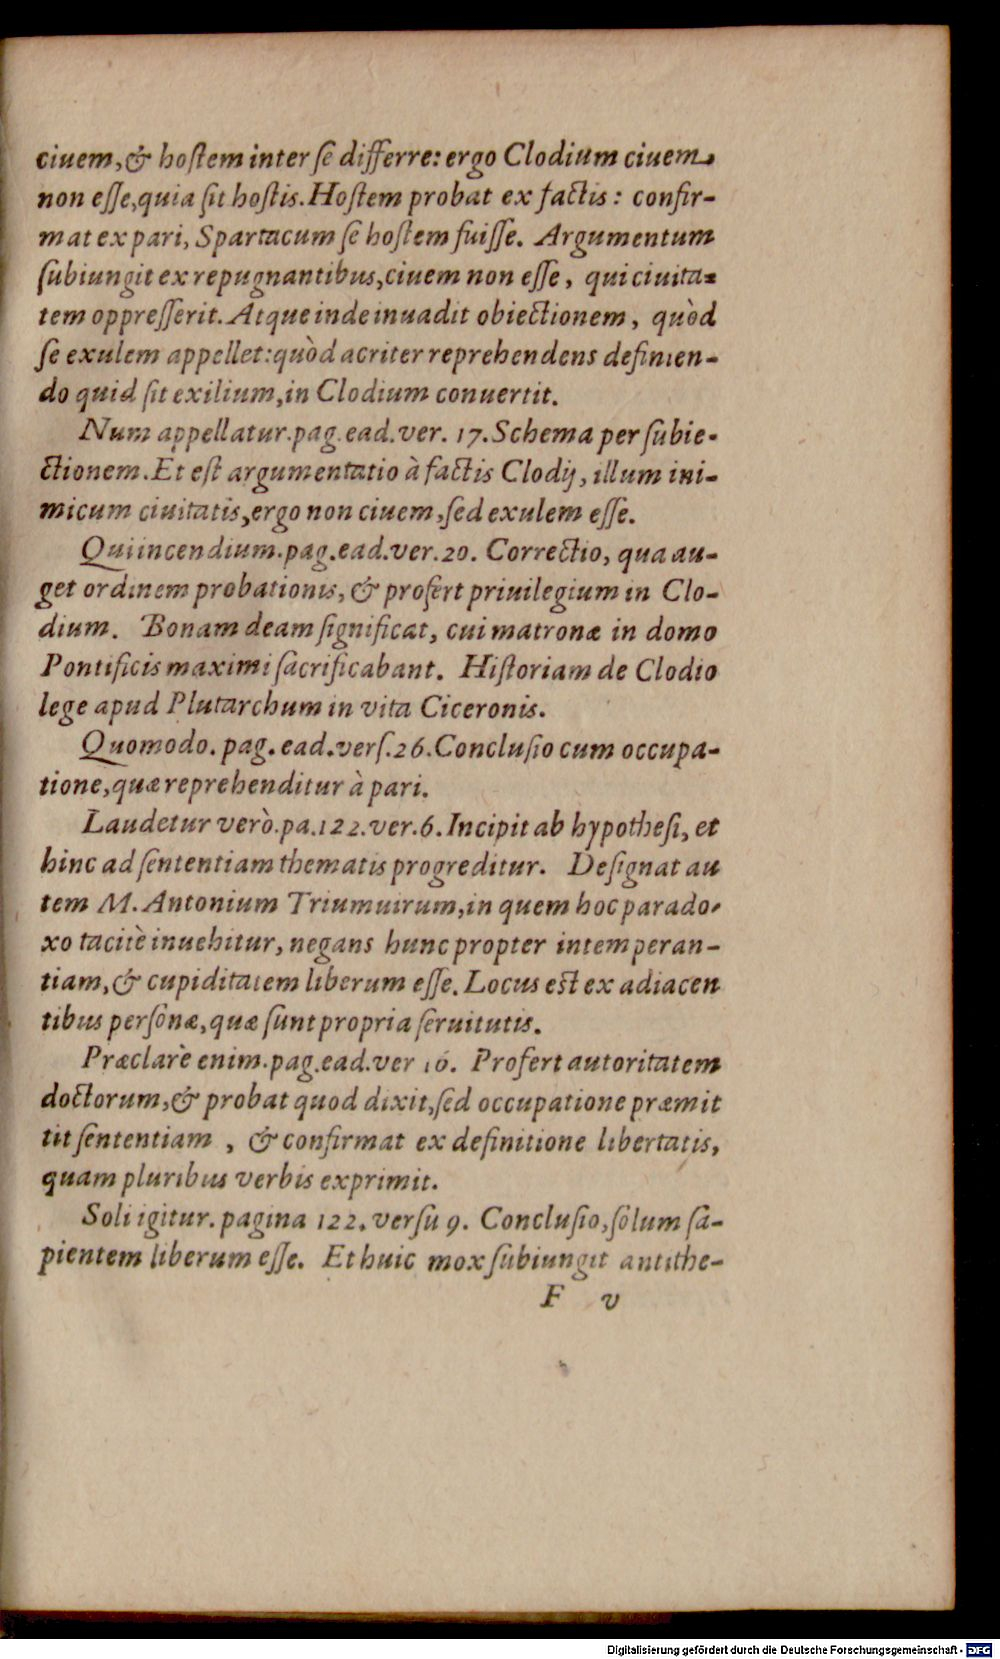 ciuem, & hoſtem inter ſe differre: ergo Clodium ciuem
non eſſe, quia ſit hoſtis. Hoſtem probat ex factis: confir-
mat ex pari, Spartacum ſe hoſtem fuiſſe. Argumentum
ſubiungit ex repugnantibus, ciuem non eſſe, qui ciuita-
tem oppreſſerit. Atque inde inuadit obiectionem, quòd
ſe exulem appellet: quòd acriter reprehendens definien-
do quid ſit exilium, in Clodium conuertit.
Num appellatur. pag. ead. ver. 17. Schema per ſubie-
ctionem. Et eſt argumentatio à factis Clodij, illum ini-
micum ciuitatis, ergo non ciuem, ſed exulem eſſe.
Qui incendium. pag. ead. ver. 20. Correctio, qua au-
get ordinem probationis, & profert priuilegium in Clo-
dium. Bonam deam ſignificat, cui matronæ in domo
Pontificis maximi ſacrificabant. Hiſtoriam de Clodio
lege apud Plutarchum in vita Ciceronis.
Quomodo. pag. ead. verſ. 26. Concluſio cum occupa-
tione, quæ reprehenditur à pari.
Laudetur verò. pa. 122. ver. 6. Incipit ab hypotheſi, et
hinc ad ſententiam thematis progreditur. Deſignat au
tem M. Antonium Triumuirum, in quem hoc parado-
xo tacitè inuehitur, negans hunc propter intemperan-
tiam, & cupiditatem liberum eſſe. Locus eſt ex adiacen
tibus perſonæ, quæ ſunt propria ſeruitutis.
Præclarè enim. pag. ead. ver 16. Profert autoritatem
doctorum, & probat quod dixit, ſed occupatione præmit
tit ſententiam, & confirmat ex definitione libertatis,
quam pluribus verbis exprimit.
Soli igitur. pagina 122. verſu 9. Concluſio, ſolum ſa-
pientem liberum eſſe. Et huic mox ſubiungit antithe-
F v
Digitalisierung gefördert durch die Deutsche Forschungsgemeinschaft - DFG